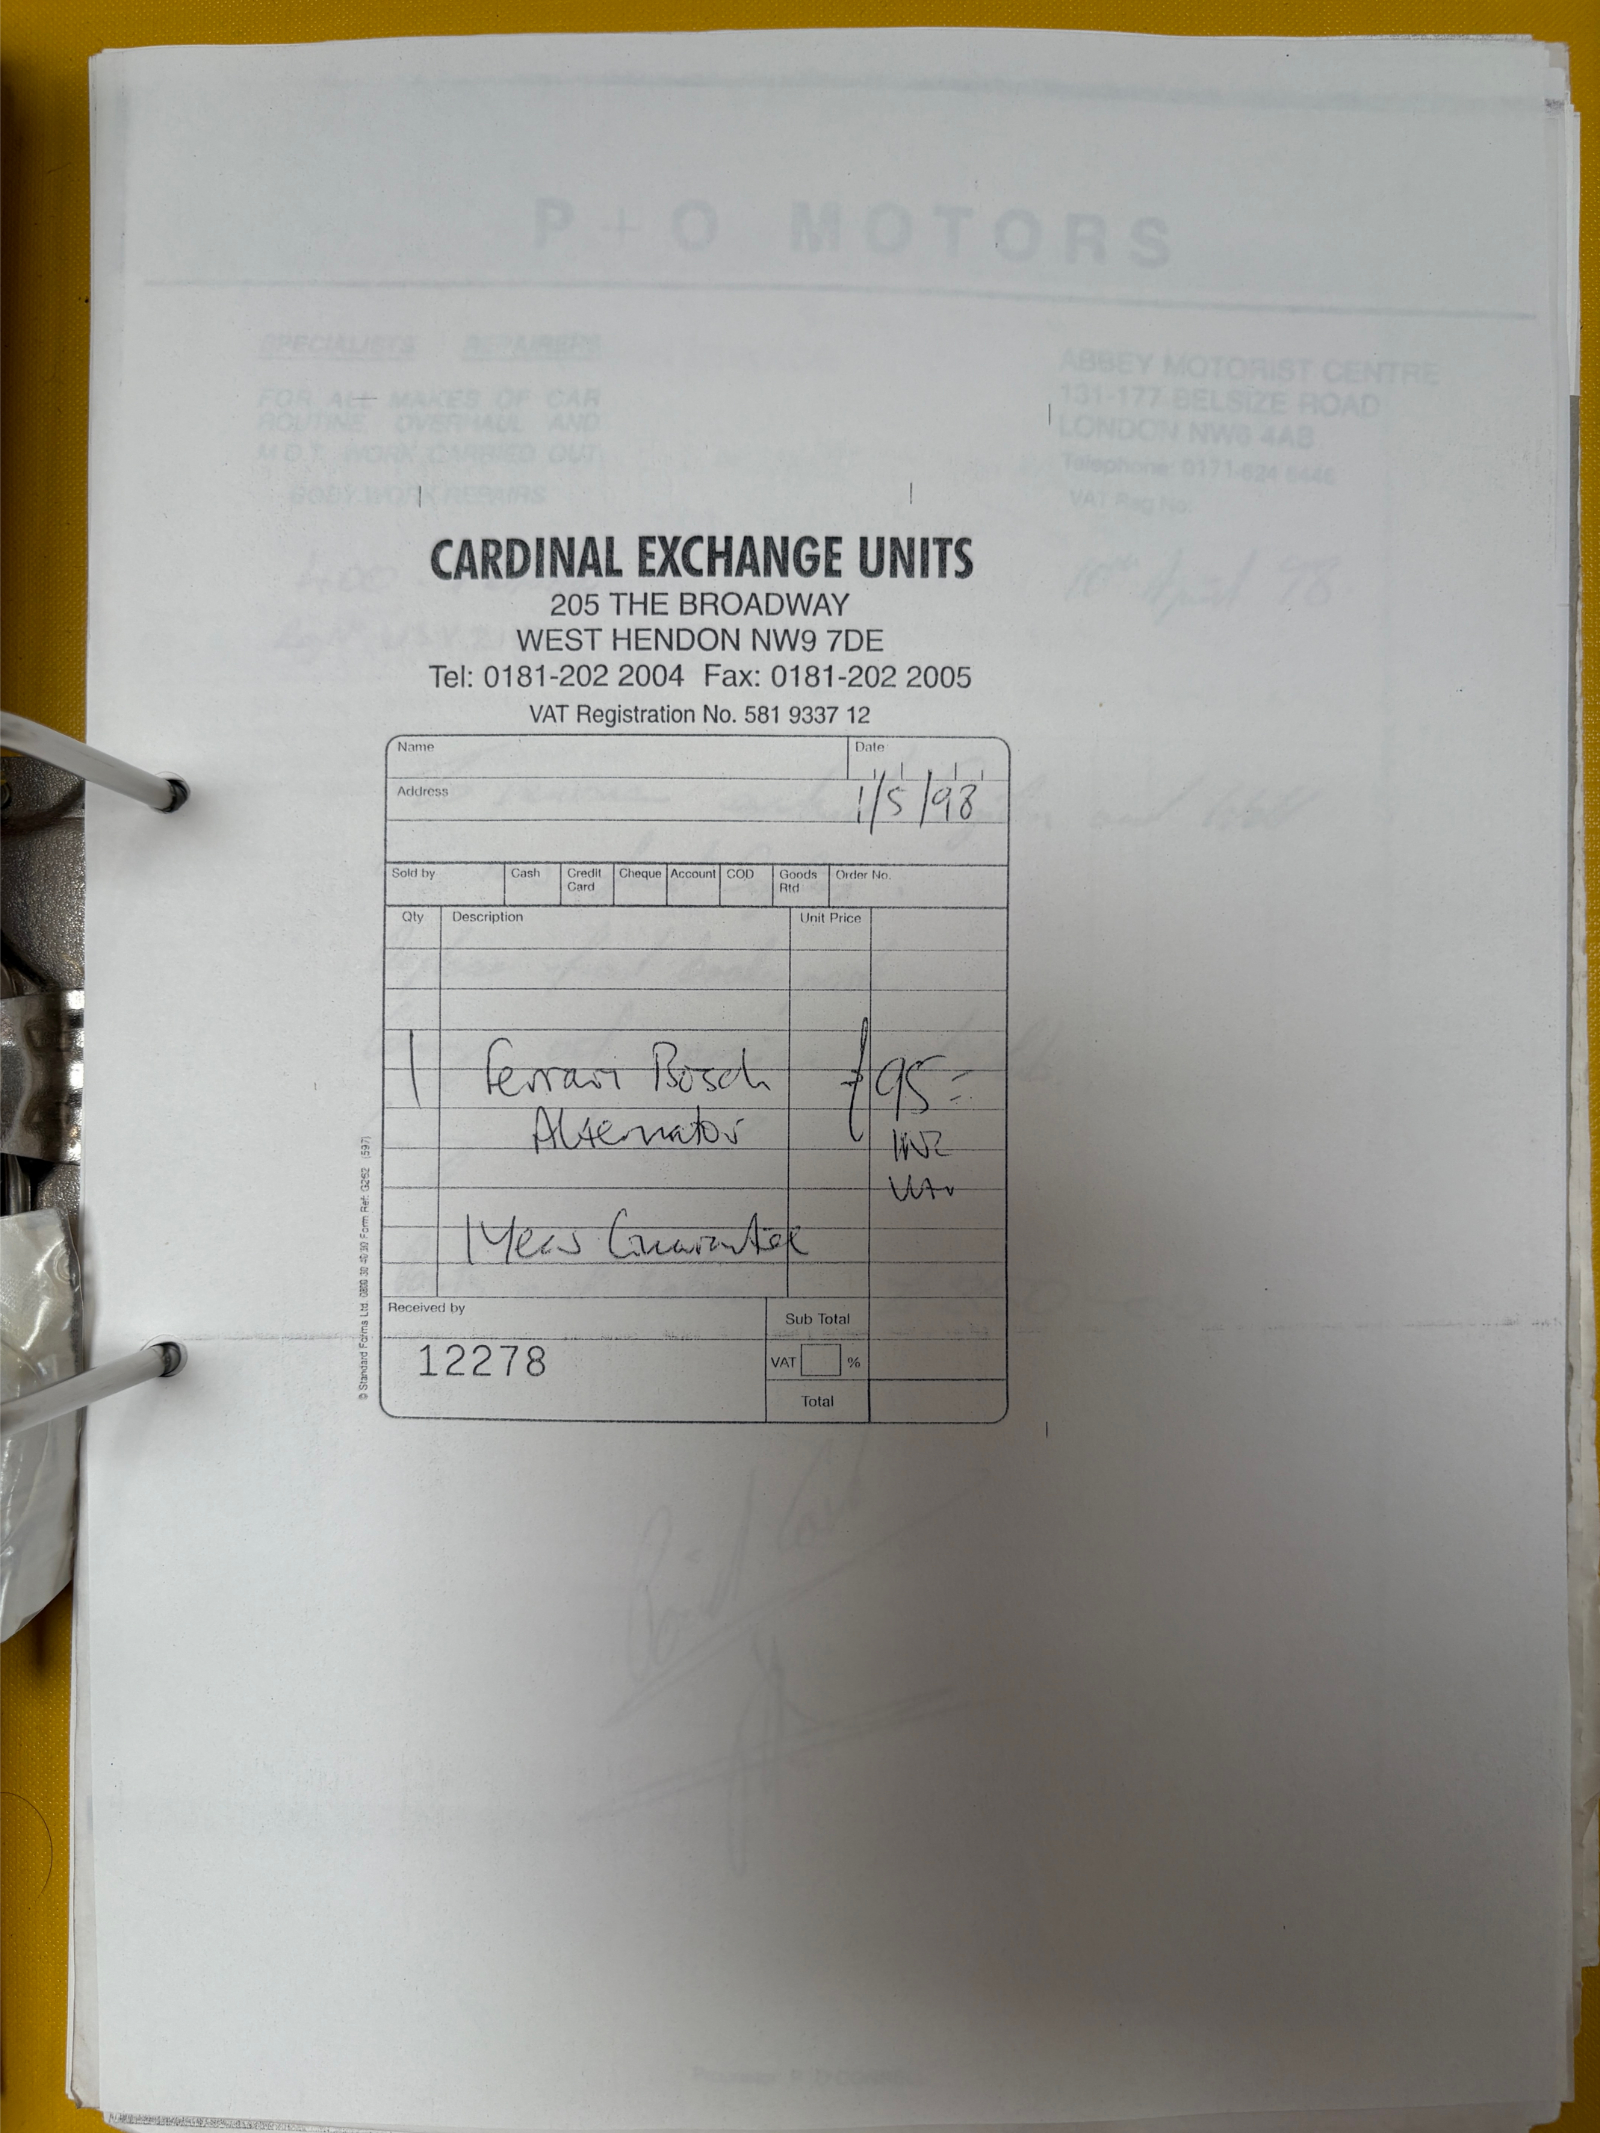 P + O MOTORS
SPECIALISTS REPAIRERS
FOR ALL MAKES OF CAR
ROUTINE, OVERHAUL AND
M.O.T. WORK CARRIED OUT
BODY WORK REPAIRS
ABBEY MOTORIST CENTRE
131-177 BELSIZE ROAD
LONDON NW6 4AB
Telephone: 0171-624 8446
VAT Reg No:
CARDINAL EXCHANGE UNITS
205 THE BROADWAY
WEST HENDON NW9 7DE
Tel: 0181-202 2004 Fax: 0181-202 2005
VAT Registration No. 581 9337 12
Name Date
Address 1/5/98
Sold by Cash Credit Card Cheque Account COD Goods Rtd Order No.
Qty Description Unit Price
1 Ferrari Bosch £95=
Alternator INC
VAT
1 Year Guarantee
Received by Sub Total
12278 VAT %
Total
© Standard Forms Ltd. Form Ref: G262 (597)